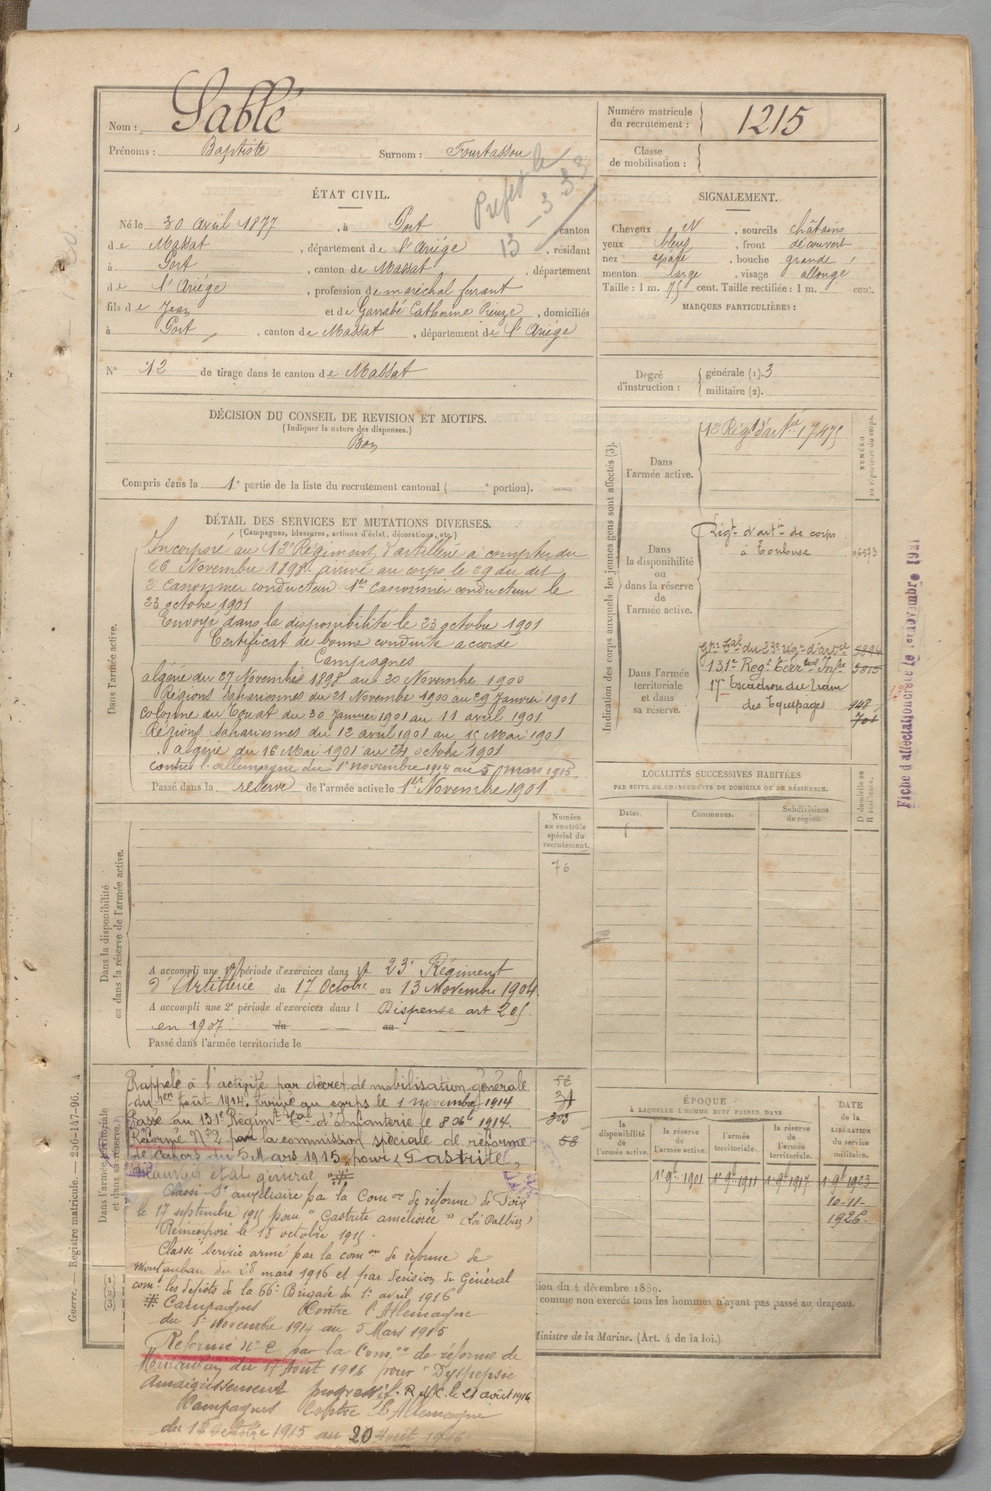 Nom : Sablé
Prénoms : Baptiste Surnom : Fourtassou
Numéro matricule
du recrutement : 1215
Classe
de mobilisation :
Préfet le
13-3-33
ÉTAT CIVIL.
Né le 30 avril 1877, à Port canton
de Massat, département de l'Ariège, résidant
à Port, canton de Massat, département
de l'Ariège, profession de maréchal ferrant
fils de Jean et de Garrabé Catherine, domiciliés
à Port, canton de Massat, département de l'Ariège
N° 12 de tirage dans le canton de Massat
SIGNALEMENT.
Cheveux N, sourcils châtains
yeux bleus, front découvert
nez épaté, bouche grande
menton large, visage allongé
Taille : 1 m. 75 cent. Taille rectifiée : 1 m. cent.
MARQUES PARTICULIÈRES :
Degré
d'instruction :
générale (1). 3
militaire (2).
DÉCISION DU CONSEIL DE REVISION ET MOTIFS.
(Indiquer la nature des dispenses.)
Bon
Compris dans la 1e partie de la liste du recrutement cantonal ( e portion).
DÉTAIL DES SERVICES ET MUTATIONS DIVERSES.
(Campagnes, blessures, actions d'éclat, décorations, etc.)
Dans l'armée active.
Incorporé au 12e Régiment d'artillerie à compter du
26 Novembre 1898, arrivé au corps le 29 du dit
2e canonnier conducteur. 1er Canonnier conducteur le
23 octobre 1901
Envoyé dans la disponibilité le 23 octobre 1901
Certificat de bonne conduite accordé
Campagnes
algérie du 27 Novembre 1898 au 20 Novembre 1900
Régions sahariennes du 21 Novembre 1900 au 29 Janvier 1901
Colonne du Touat du 30 Janvier 1901 au 11 avril 1901
Régions sahariennes du 12 avril 1901 au 15 Mai 1901
algérie du 16 Mai 1901 au 24 octobre 1901
contre l'allemagne du 1er novembre 1914 au 5 mars 1915.
Passé dans la réserve de l'armée active le 1er Novembre 1901
Indication des corps auxquels les jeunes gens sont affectés (3).
NUMÉRO
au répertoire du corps.
Dans
l'armée active.
12e Régt d'artie 17475
Dans
la disponibilité
ou
dans la réserve de
l'armée active.
Régt d'artie de corps
à Toulouse
Dans l'armée
territoriale
et dans
sa réserve.
du 23e régt d'artie
131e Regt Territorial Infie
17e Escadron du Train
des Equipages
Fiche d'affectation créée le 1er novembre 1921
LOCALITÉS SUCCESSIVES HABITÉES
PAR SUITE DE CHANGEMENTS DE DOMICILE OU DE RÉSIDENCE.
Dates.
Communes.
Subdivisions
de région.
D domicile ou
R résidence.
Numéro
au contrôle
spécial du
recrutement.
76
Dans la disponibilité
ou dans la réserve de l'armée active.
A accompli une 1re période d'exercices dans le 23e Régiment
d'Artillerie du 17 Octobre au 13 Novembre 1904
A accompli une 2e période d'exercices dans l Dispensé art 205
en 1907. du au
Passé dans l'armée territoriale le
Dans l'armée territoriale
et dans sa réserve.
Rappelé à l'activité par décret de mobilisation générale
du 1er août 1914. Arrivé au corps le 1 novembre 1914
Passé au 131e Régimt Tal d'Infanterie le 8 Xbre 1914.
Réformé N°2 par la commission spéciale de réforme
de Cahors du 5 Mars 1915 pour "Gastrite,
Mauvais état général"
Classé Sce auxiliaire par la Comon de réforme de Foix
le 17 septembre 1915 pour "Gastrite améliorée" (Loi Dalbiez)
Réincorporé le 18 octobre 1915.
Classé service armé par la comon de réforme de
Montauban du 28 mars 1916 et par décision du Général
comt les dépôts de la 66e Brigade du 1er avril 1916
# Campagnes Contre l'Allemagne
du 1er novembre 1914 au 5 Mars 1915
Réformé N° 2 par la Comon de réforme de
Montauban du 17 Aout 1916 pour "Dyspepsie
Amaigrissement progressif. R.d.C. le 21 août 1916
Campagnes Contre l'Allemagne
du 18 octobre 1915 au 20 Août 1916.
ÉPOQUE
À LAQUELLE L'HOMME EST PASSÉ DANS
la
disponibilité
de
l'armée active.
la réserve
de
l'armée active.
l'armée
territoriale.
la réserve
de
l'armée
territoriale.
DATE
de la
LIBÉRATION
du service
militaire.
1er 9bre 1901 1er 9bre 1911 1er 9bre 1917 1er 9bre 1923
10-11-
1926.
ion du 4 décembre 1889.
comme non exercés tous les hommes n'ayant pas passé au drapeau.
Ministre de la Marine. (Art. 4 de la loi.)
Guerre. — Registre matricule. — 256-147-96.